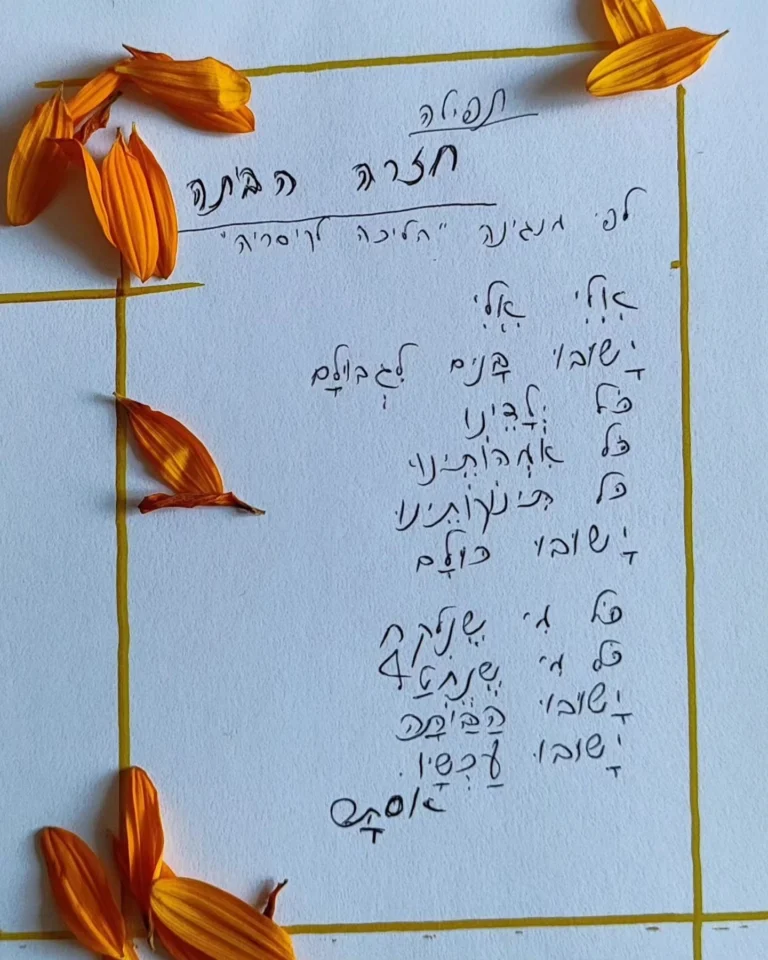 תפילה
חזרה הביתה
לפי מנגינה "הליכה לקיסריה"
אֵלִי אֵלִי
יָשׁוּבוּ בָּנִים לִגְבוּלָם
כל יְלָדֵינוּ
כל אִמְהוֹתֵינוּ
כל תִּינוֹקוֹתֵינוּ
יָשׁוּבוּ כּוּלָם
כל מִי שֶׁנִלְקַח
כל מִי שֶׁנֶחְטַף
יָשׁוּבוּ הַבַּיְתָה
יָשׁוּבוּ עַכְשָׁיו.